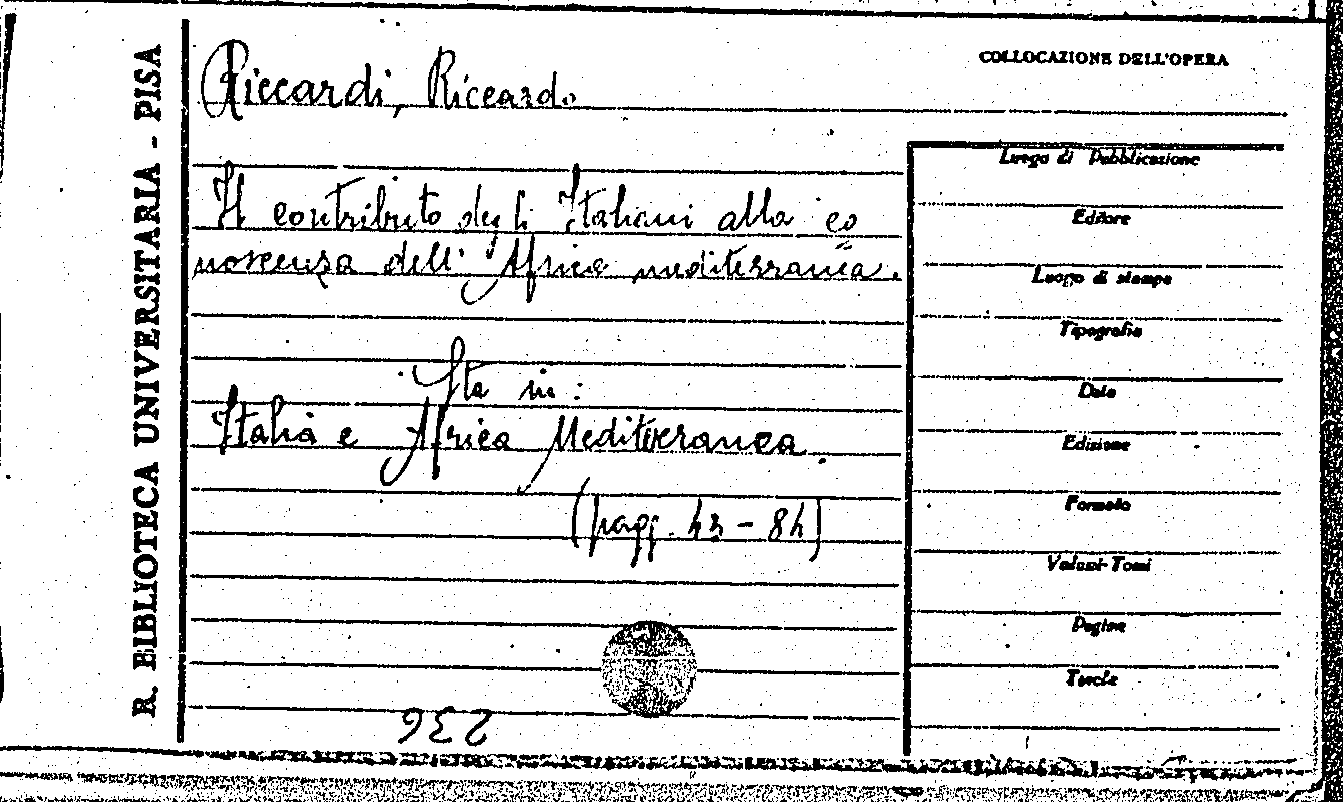 R. BIBLIOTECA UNIVERSITARIA - PISA
Riccardi, Riccardo
COLLOCAZIONE DELL'OPERA
Il contributo degli Italiani alla co=
noscenza dell'Africa mediterranea.
Sta in:
Italia e Africa Mediterranea.
(pagg. 43-84)
236
Luogo di Pubblicazione
Editore
Luogo di stampa
Tipografia
Data
Edizione
Formato
Volumi-Tomi
Pagine
Tavole